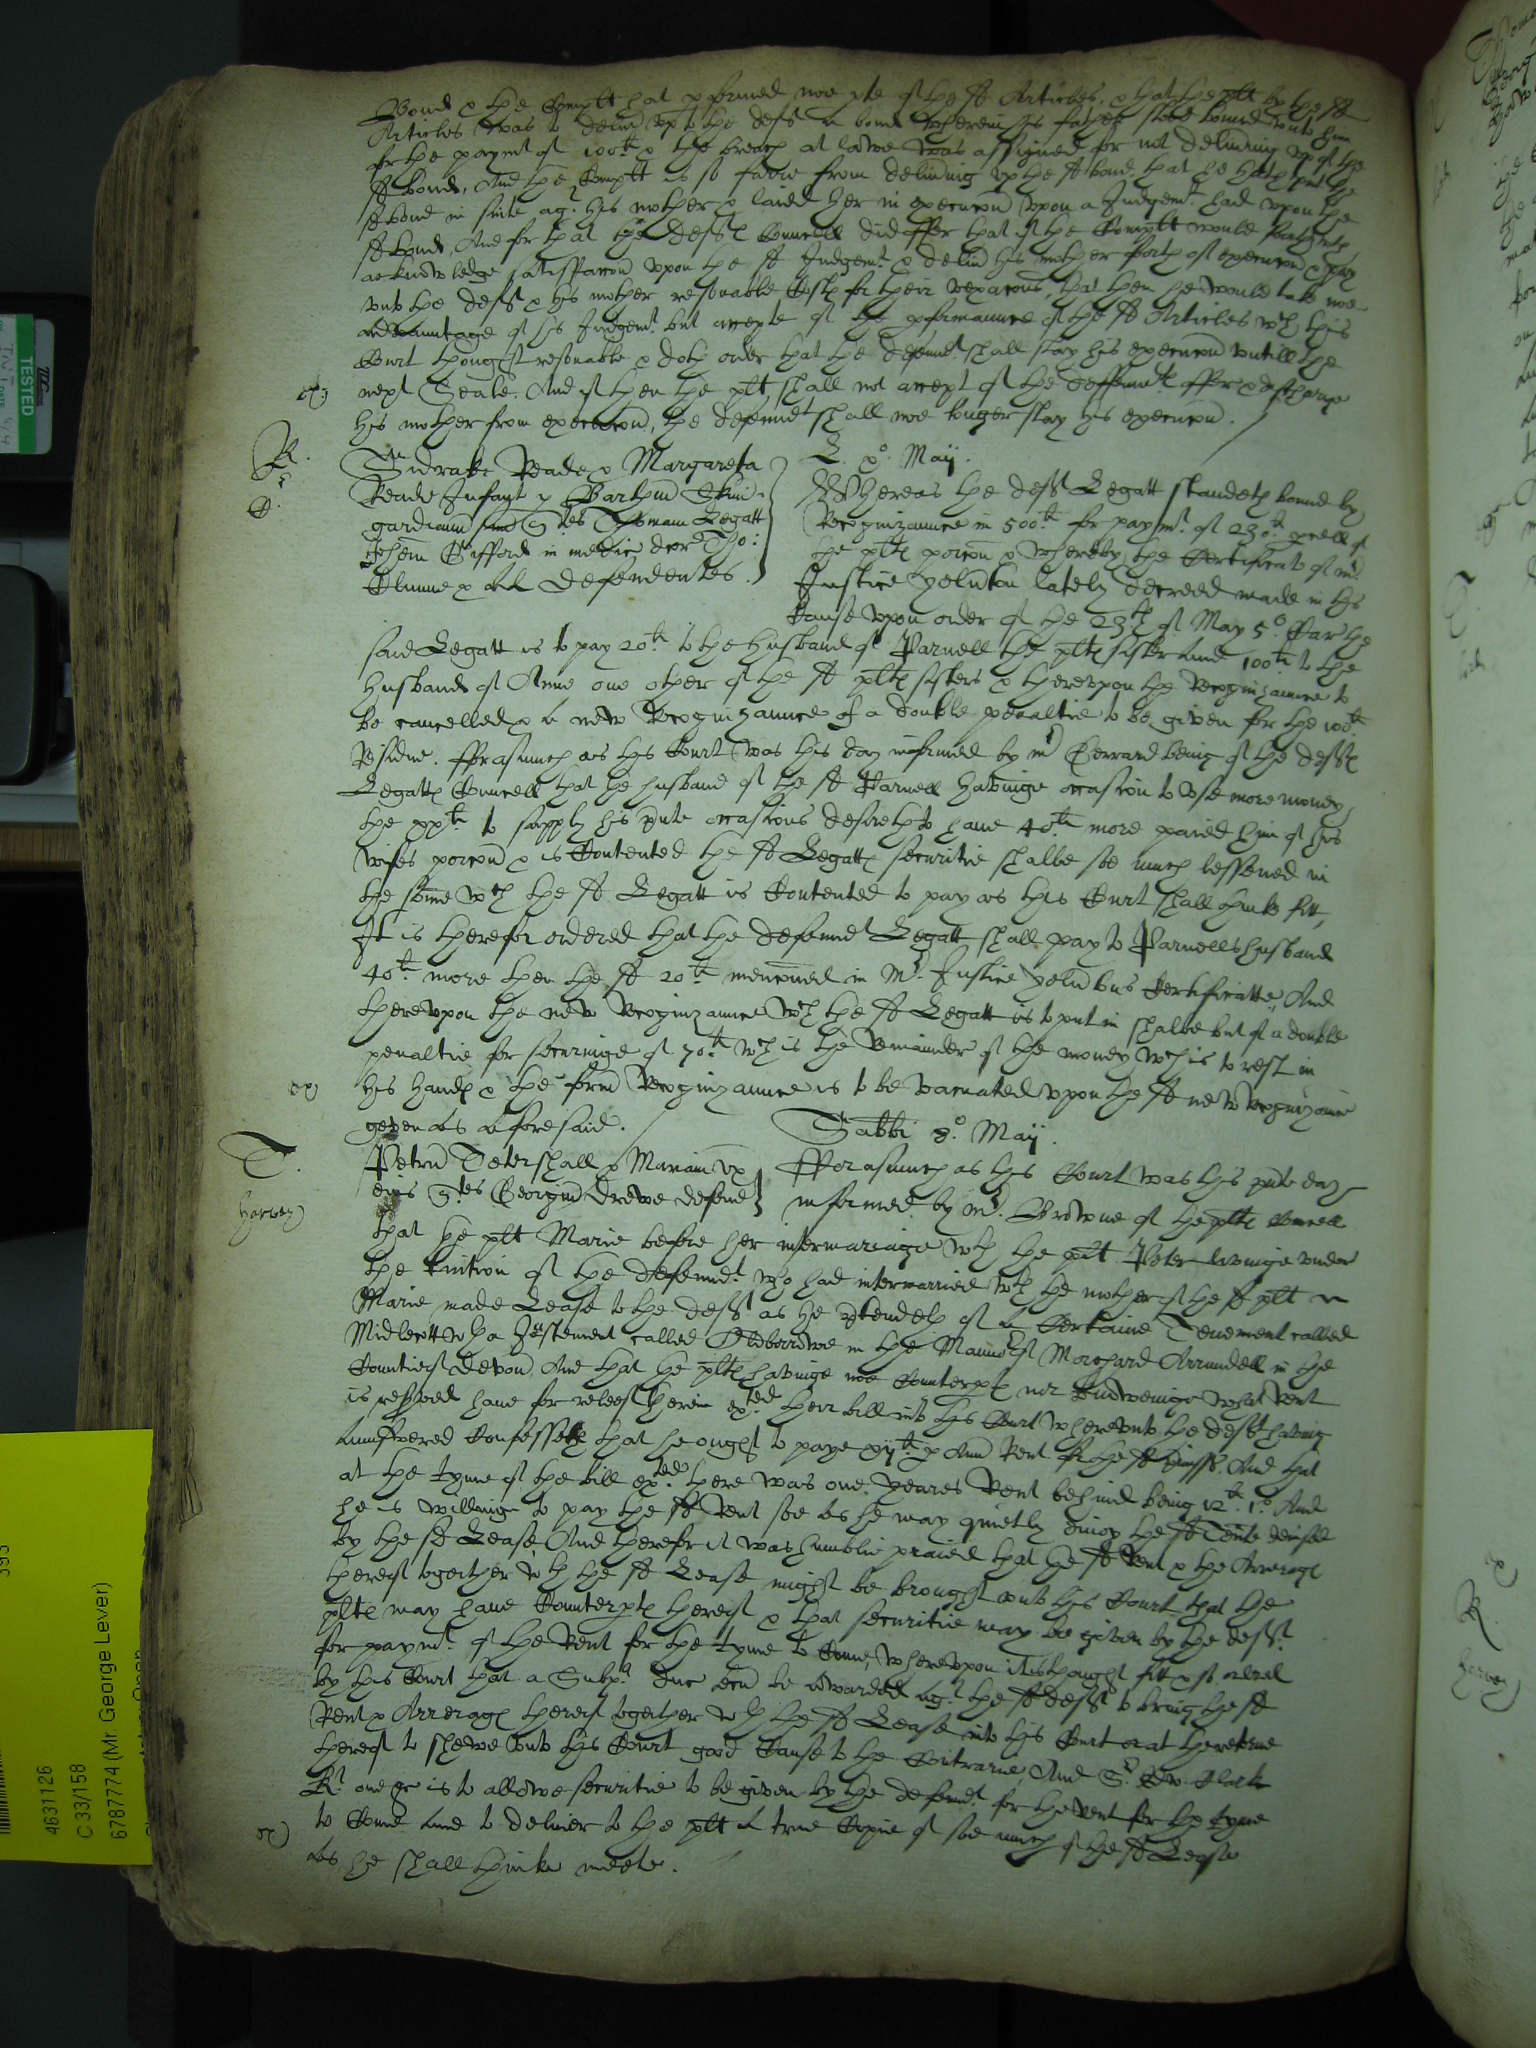 Bond & the Complt hat pformed noe pte of the sd Articles, & that the plt by the sd
Articles was to deliu vp to the deft a bond wherein his father stood bound vnto him
for the paymt of 100li & the breach at lawe was assigned for not deliuing vp of the
sd bond, And the Complt is so farre from deliuing vp the sd bond, that he hath put the
sd bond in suite agt his mother & laied her in execucon vpon a Judgemt had vpon the
sd bond, And for that the defts Councell did offer that if the Complt would forthwth
acknowledge satisfaccon vpon the sd Judgemt & deliu his mother forth of execucon & pay
vnto the deft & his mother resonable Costs for their vexacons, that then he would take noe
aduauntage of his Judgemt but accepte of the pformaunce of the sd Articles wch this
Court thought resonable & doth order that the defendt shall stay his execucon vntill the
next Seale. And if then the plt shall not accept of the deffendts offer & discharge
his mother from execucon, the defendt shall noe longer stay his execucon.
R.
Sidrake Reade & Margareta
Reade Infant p Barthm
gardianm qtes Thomam Legatt
Johem Gifford in medicis dcore Tho:
Clunne & al defendentes.
L. xo. Maij.
Whereas the deft Legatt standeth bound by
Recognizaunce in 500li for paymt of 230li pcell of
the plts porcon & whereby the Certificat of mr
Justice Yeluton lately decreed made in this
Cause vpon order of the 23th of May 5o Car the
said Legatt is to pay 20li to the husband of Parnell the plts sister and 100li to the
husband of Anne one other of the sd plts sisters & therevpon the Recognizaunce to
be cancelled & a new Recognizaunce of a double penaltie to be given for the 110li
Residue. fforasmuch as this Court was this day informed by mr Gerrard being of the defts
Legatts Councell that the husband of the sd Parnell havinge occasion to vse more money
the xxli to supply his pnte occasions desireth to haue 40li more paied him of his
wifes porcon & is Contented the sd Legatts securitie shalbe soe much lessened in
the some wch the sd Legatt is Contented to pay as this Court shall thinke fitt,
It is therefor ordered that the defendt Legatt shall pay to Parnells husband
40li more then the sd 20li menconed in Mr. Justice Yelutons Certificatte, And
therevpon the new Recognizaunce wch the sd Legatt is to put in shalbe but of a double
penaltie for securinge of 70li wch is the Remainder of the money wch is to rest in
his hands & the form Recognizaunce is to be vacuated vpon the sd new Recognizaunce
geven as aforesaid.
Sabbi 8o. Maij.
T.
Harvey
Petrm Tetershall & Mariam vx
eius qtes Georgiu Drewe defend
fforasmuch as this Court was this pnte day
informed by mr. Browne of the plts Councell
that the plt Marie before her intermariage wth the plt Peter livinge vnder
the tuition of the defendt who had intermarried wth the mother of the sd plt
Marie made Lease to the deft as he ptendeth of a Certaine Tenement called
Midlecott wth a Justement called Oldborowe in the Mannor of Morchard Arrundell in the
Countie of Devon, And that the plts havinge noe Counterpte nor knoweinge what Rent
is reserved haue for releef therein exted their bill into this Court wherevnto the deft having
aunswered Confesseth that he ought to paye xijli p Ann Rent for the sd pmisses. And that
at the tyme of the bill exted there was one yeares Rent behind being 12li 1s. And
he is willinge to pay the sd Rent soe as he may quietly enioy the sd Tente devised
by the sd Lease And therefor it was humblie praied that the sd Rent & the Arrerages
thereof together wth the sd Lease might be brought into this Court that the
plts may haue Counterpts thereof & that securitie may be given by the deft
for paymt of the Rent for the tyme to Come, wherevpon it is thought fitt & so ordered
by this Court that a Subp: duc tecu be awarded agt the sd deft to bring the sd
Rent & Arrerages thereof together wth the sd Lease into this Court or at the retorne
thereof to shewe vnto this Court good Cause to the Contrarie, And Sr. Edw. Clark
Kt one &c is to allowe securitie to be given by the defendt for the Rent for the tyme
to Come and to deliuer to the plt a true Copie of soe much of the sd Lease
as he shall thinke meete.
TESTED
393
4631126
C 33/158
6787774 (Mr. George Lever)
R.
Harvey